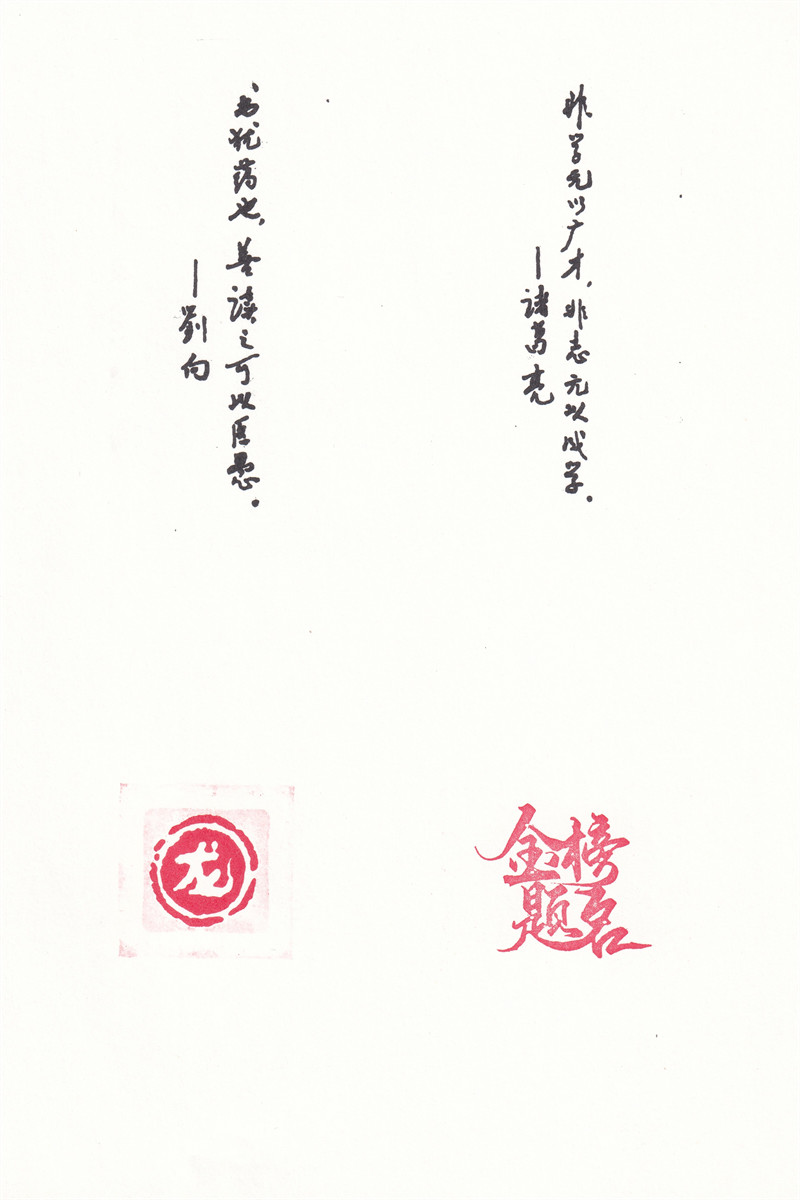 非学无以广才，非志无以成学。
—诸葛亮
书犹药也，善读之可以医愚。
—劉向
金榜
题名
龙